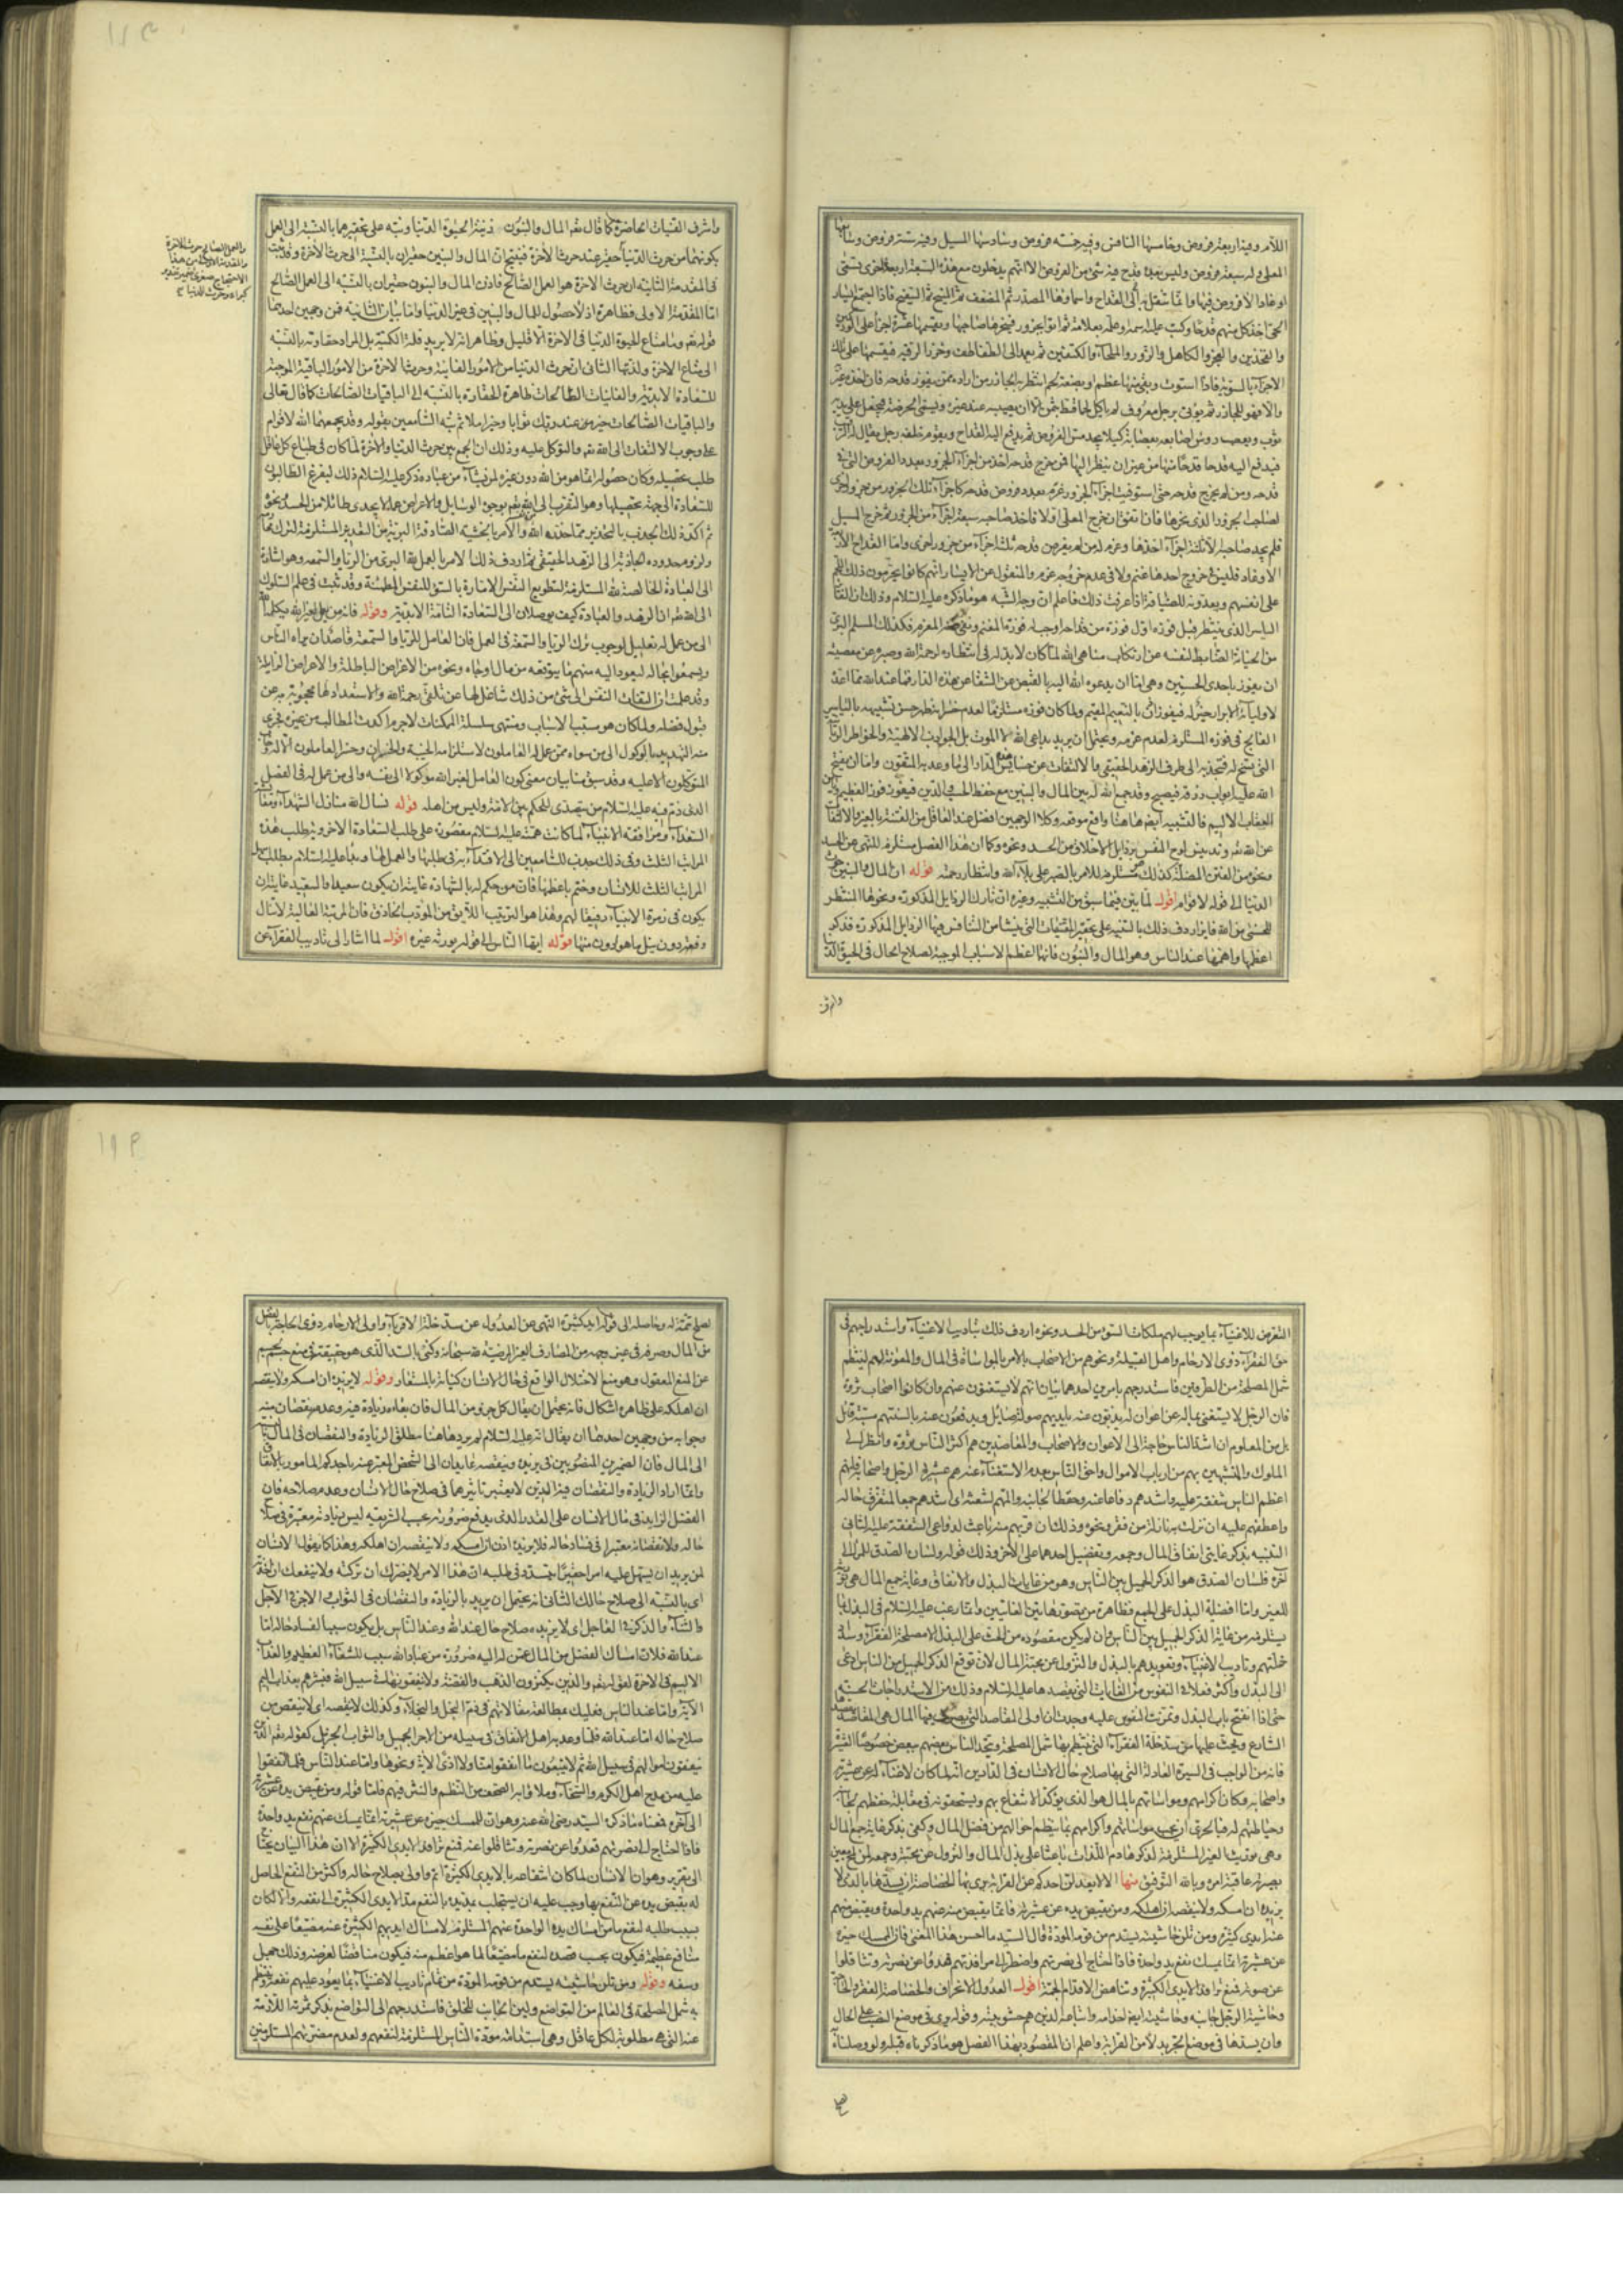 اللآمر وفيه اربعة فروض وخامسها النافس وفيه خمسة فروض وسادسها المسبل وفيه ستة فروض وسابعها
المعلى وله سبعة فروض وليس بعده قدح فيه شئ من الفروض الا انهم يدخلون مع هذه السبعة اربعة اخرى تسمى
اوغادا لا فروض فيها وانما تثقل بها القداح واسماؤها المصدر ثم المضعف ثم المنيح ثم السفيح فاذا اجتمع ايسار
الحى اخذ كل منهم قدحا وكتب عليه اسمه او علم بعلامة ثم اتوا بجزور فينحرها صاحبها ويقسمها عشرة اجزاء على الوركين
والفخذين والعجز والكاهل والزور والملحاء والكتفين ثم يعمد الى الطفاطف وخرز الرقبة فيقسمها على تلك
الاجزاء بالسوية فاذا استوت وبقى منها عظم او بضعة لحم انتظر به الجازر من اراده ممن يفوز قدحه فان اخذه عير
والا فهو للجازر ثم يؤتى برجل معروف لم ياكل لحما قط بثمن الا ان يصيبه عند غيره ويسمى الحرضة فيجعل على يديه
ثوب ويعصب رؤس اصابعه بعصابة كيلا يجد مس الفروض ثم يدفع اليه القداح ويقوم خلفه رجل يقال له الرقيب
فيدفع اليه قدحا قدحا منها من غير ان ينظر اليها فمن يخرج قدحه اخذ من اجزاء الجزور بعدد الفروض التى فى
قدحه ومن لم يخرج قدحه حتى استوفيت اجزاء الجزور غرم بعدد فروض قدحه كاجزاء تلك الجزور من جزور اخرى
لصاحب الجزور الذى نحرها فان اتفق ان خرج المعلى اولا فاخذ صاحبه سبعة اجزاء من الجزور ثم خرج المسبل
فلم يجد صاحبه الا ثلثة اجزاء اخذها وغرم له من لم يفز من قدحه ثلثة اجزاء من جزور اخرى واما القداح الاربعة
الاوغاد فليس فى خروج احدها غنم ولا فى عدم خروجه غرم والمنقول عن الايسار انهم كانوا يحرمون ذلك اللحم
على انفسهم ويعدونه للضيافة اذا عرفت ذلك فاعلم ان وجه الشبه هو ما ذكره عليه السلام وذلك ان الفالج
الياسر الذى ينتظر قبل فوزه اول فوزة من قداحه اوجب له فوزه المغنم ونفى عنه المغرم فكذلك المسلم البرئ
من الخيانة الضابط لنفسه عن ارتكاب مناهى الله لما كان لابد له فى انتظاره لرحمة الله وصبره عن معصيته
ان يفوز باحدى الحسنيين وهى اما ان يدعوه الله اليه بالقبض عن الشقا عن هذه الدار فما عند الله مما اعد
لاوليائه الابرار خير له فيفوز اذن بالنعيم المقيم ولما كان فوزه مستلزما لعدم خسرانه ظهر حسن تشبيهه بالياسر
الفالج فى فوزه المستلزم لعدم غرمه ويحتمل ان يريد بداعى الله لا الموت بل الجواذب الالهية والخواطر الربانية
التى تسنح له فتجذبه الى طرف الزهد الحقيقى والالتفات عن خسايس هذه الدار الى ما وعد به المتقون واما ان يفتح
الله عليه ابواب رزقه فيصبح وقد جمع الله له بين المال والبنين مع حفظ الحسب والدين فيفوز الفوز العظيم ويامن
العقاب الاليم فالتشبيه ايضا هاهنا واقع موقعه وكلا الوجهين افضل عند العاقل من الفتنة بالغير والالتفات
عن الله تعالى وتدنيس لوح النفس برذايل الاخلاق من الحسد ونحوه وكما ان هذا الفصل مستلزم للنهى عن الحسد
ونحوه من الفتن المضلة كذلك مستلزم للامر بالصبر على بلاء الله وانتظار رحمته قوله ان المال والبنين حرث
الدنيا الى قوله لاقوام اقول لما بين فيما سبق من التشبيه وغيره ان تارك الرذايل المذكورة ونحوها المنتظر
للحسنى من الله فايز اردف ذلك بالتنبيه على تحقير المقتنيات التى ينشا من التنافس فيها الرذايل المذكورة فذكر
اعظمها واهمها عند الناس وهو المال والبنون فانها اعظم الاسباب الموجبة لصلاح الحال فى الحيوة الدنيا
واشرف
واشرف القنيات الحاضرة كما قال تعالى المال والبنون زينة الحيوة الدنيا ونبه على تحقيرهما بالنسبة الى العمل
بكونهما من حرث الدنيا وحقير عند حرث الآخرة فينتج ان المال والبنين حقيران بالنسبة الى حرث الآخرة وقد ثبت
فى المقدمة الثانية ان حرث الآخرة هو العمل الصالح فاذن المال والبنون حقيران بالنسبة الى العمل الصالح
اما المقدمة الاولى فظاهرة اذ لا حصول للمال والبنين فى غير الدنيا واما بيان الثانية فمن وجهين احدهما
قوله تعالى وما متاع الحيوة الدنيا فى الآخرة الا قليل وظاهر انه لا يريد قلة الكمية بل المراد حقارته بالنسبة
الى متاع الآخرة ولذتها الثانى ان حرث الدنيا من الامور الفانية وحرث الآخرة من الامور الباقية الموجبة
للسعادة الابدية والفانيات الصالحات ظاهرة الحقارة بالنسبة الى الباقيات الصالحات كما قال تعالى
والباقيات الصالحات خير عند ربك ثوابا وخير املا ثم نبه السامعين بقوله وقد يجمعهما الله لاقوام
على وجوب الالتفات الى الله تعالى والتوكل عليه وذلك ان الجمع بين حرث الدنيا والآخرة لما كان فى طباع كل عاقل
طلب تحصيله وكان حصوله انما هو من الله دون غيره لمن يشاء من عباده ذكر عليه السلام ذلك ليفرغ الطالبون
للسعادة الى جهة تحصيلها وهو التقرب الى الله تعالى بوجوه الوسايل والاعراض عما لا يجدى طائلا من الحسد ونحوه
ثم اكد ذلك الجذب بالتحذير مما حذره الله والامر بالخشية الصادقة البريئة من التعذير المستلزمة لترك محارمه
ولزوم حدوده الجاذبة الى الزهد الحقيقى ثم اردف ذلك بالامر بالعمل لله البرى من الرياء والسمعة وهو اشارة
الى العبادة الخالصة لله المستلزمة لتطويع النفس الامارة بالسوء للنفس المطمئنة وقد ثبت فى علم السلوك
الى الله تعالى ان الزهد والعبادة كيف يوصلان الى السعادة التامة الابدية وقوله فانه من يعمل لغير الله يكله الله
الى من عمل له تعليل لوجوب ترك الرياء والسمعة فى العمل فان العامل للرياء والسمعة قاصد ان يراه الناس
ويسمعوا بحاله ليعود اليه منهم ما يتوقعه من مال او جاه ونحوه من الاغراض الباطلة والاعراض الزايلة
وقد علمت ان التفات النفس الى شئ من ذلك شاغل لها عن تلقى رحمة الله والاستعداد لها محجوبة به عن
قبول فضله ولما كان هو مسبب الاسباب ومنتهى سلسلة الممكنات لاجرم اكدت المطالب من غيره يجرى
منه التهديد بالوكول الى من سواه ممن عمل له العاملون لاستلزامه الخيبة والخسران وخسر العاملون الا له وخاب
المتوكلون الا عليه وقد سبق منا بيان معنى كون العامل لغير الله موكولا الى نفسه والى من عمل له فى الفصل
الذى ذم فيه عليه السلام من يتصدى للحكم بين الامة وليس من اهله قوله نسال الله منازل الشهداء ومعايشة
السعداء ومرافقة الانبياء لما كانت همته عليه السلام مقصورة على طلب السعادة الاخروية طلب هذه
المراتب الثلث وفى ذلك جذب للسامعين الى الاقتداء به فى طلبها والعمل لها وبدأ عليه السلام بطلب اسهل
المراتب الثلث للانسان وختم باعظمها فان من حكم له بالشهادة غايته ان يكون سعيدا والسعيد غايته ان
يكون فى زمرة الانبياء رفيقا لهم وهذا هو الترتيب اللائق من المؤدب الحاذق فان المرتبة العالية لا تنال
دفعة دون نيل ما هو ادون منها قوله ايها الناس الى قوله يورثه غيره اقول لما اشار الى تاديب الفقراء عن
والعمل الصالح حرث الآخرة
التعرض للاغنياء بما يوجب لهم ملكات السوء من الحسد ونحوه اردف ذلك بتاديب الاغنياء واستدراجهم فى
حق الفقراء ذوى الارحام واهل القبيلة ونحوهم من الاصحاب بالامر بالمواساة فى المال والمعونة لهم لينتظم
شمل المصلحة من الطرفين فاستدرجهم بامرين احدهما بيان انهم لا يستغنون عنهم وان كانوا اصحاب ثروة
فان الرجل لا يستغنى بماله عن اعوان له يذبون عنه بايديهم صولة صايل ويدفعون عنه بالسنتهم مسبة قايل
بل من المعلوم ان اشد الناس حاجة الى الاعوان والاصحاب والمعاضدين هم اكثر الناس ثروة وانظر الى
الملوك والمتشبهين بهم من ارباب الاموال واحق الناس بعدم الاستغناء عنه هم عشيرة الرجل واصحابه فانهم
اعظم الناس شفقة عليه واشدهم دفاعا عنه وحفظا لجانبه والمهم لشعثه اى اشدهم جمعا لمتفرق حاله
واعطفهم عليه ان نزلت به نازلة من فقر ونحوه وذلك ان قربهم منه باعث لدواعى الشفقة عليه الثانى
التنبيه بذكر غايتى انفاق المال وجمعه وتفضيل احدهما على الآخر وذلك قوله ولسان الصدق للمرء الى
آخره فلسان الصدق هو الذكر الجميل بين الناس وهو من غايات البذل والانفاق وغاية جمع المال هى توريثه
للغير واما افضلية البذل على الجمع فظاهرة من تصور هاتين الغايتين وانما رغب عليه السلام فى البذل بما
يستلزمه من غاية الذكر الجميل بين الناس وان لم يكن مقصوده من الحث على البذل الا مصلحة الفقراء وسد
خلتهم وتاديب الاغنياء وتعويدهم بالبذل والنزول عن محبة المال لان توقع الذكر الجميل من الناس ادعى
الى البذل واكثر فعلا فى النفوس من الغايات التى يقصدها عليه السلام وذلك من الاستدراجات الحسنة
حتى اذا انفتح باب البذل وتمرنت النفوس عليه وجدت ان اولى المقاصد التى يصرف فيها المال هى المقاصد التى
فانه من الواجب فى السيرة العادلة التى بها صلاح حال الانسان فى الدارين انه لما كان لا غناء له عن عشيرته
واصحابه وكان اكرامهم ومواساتهم بالمال هو الذى يؤكد الانتفاع بهم ويستحقونه فى مقابلة حفظهم لجانبه
وحياطتهم له فبالحرى ان يجب مواساتهم واكرامهم بما ينتظم احوالهم من فضل المال وكفى بذكر غاية جمع المال
وهى توريثه الغير المستلزم لذكر هادم اللذات باعثا على بذل المال والنزول عن محبته وجمعه لمن لمح بعين
بصيرته عاقبة امره وبالله التوفيق منها الا لا يعدلن احدكم عن القرابة يرى بها الخصاصة ان يسدها بالذى لا
يزيده ان امسكه ولا ينقصه ان اهلكه ومن يقبض يده عن عشيرته فانما يقبض منه عنهم يد واحدة ويقبض منهم
عنه ايدى كثيرة ومن تلن حاشيته يستدم من قومه المودة قال السيد ما احسن هذا المعنى فان الممسك خيره
عن عشيرته انما يمسك نفع يد واحدة فاذا احتاج الى نصرتهم واضطر الى مرافدتهم قعدوا عن نصرته وتثاقلوا
عن صوته فمنع ترافد الايدى الكثيرة وتناهض الاقدام الجمة اقول العدول الانحراف والخصاصة الفقر والحاجة
وحاشية الرجل جانبه وحاشيته ايضا خدامه واتباعه الذين هم حشو بيته وقوله يرى فى موضع النصب على الحال
وان يسدها فى موضع الجر بدلا من القرابة واعلم ان المقصود بهذا الفصل هو ما ذكرناه قبله ولو وصلناه
لصلح تتمة له وحاصله الى قوله ايد كثيرة النهى عن العدول عن سد خلة الاقرباء واولى الارحام ذوى الحاجة بالفضل
من المال وصرفه فى غير وجهه من المصارف الغير المرضية لله سبحانه وكنى بالسد الذى هو حقيقة فى منع جسم بجسم
عن المنع المعقول وهو منع الاختلال الواقع فى حال الانسان كناية بالمستعار وقوله لا يزيده ان امسكه ولا ينقصه
ان اهلكه على ظاهره اشكال فانه يحتمل ان يقال كل جزء من المال فان بقاءه زيادة فيه وعدمه نقصان منه
وجوابه من وجهين احدهما ان يقال انه عليه السلام لم يرد هاهنا مطلق الزيادة والنقصان فى المال
الى المال فان الضميرين المنصوبين فى يزيده وينقصه عايدان الى الشخص المعبر عنه باحدكم المامور بالانفاق
وانما اراد الزيادة والنقصان فيه الذين لا يعتبر تاثيرهما فى صلاح حال الانسان وعدم صلاحه فان
الفضل الزايد فى مال الانسان على القدر الذى يدفع ضرورته بحسب الشريعة ليس زيادته معتبرة فى صلاح
حاله ولا نقصانه معتبرا فى فساد حاله فلا يزيده اذن ان امسكه ولا ينقصه ان اهلكه وهذا كما يقول الانسان
لمن يريد ان يسهل عليه امرا حقيرا يجتهد فى طلبه ان هذا الامر لا يضرك ان تركته ولا ينفعك ان اخذته
اى بالنسبة الى صلاح حالك الثانى انه يحتمل ان يريد بالزيادة والنقصان فى الثواب الاجر فى الآجل
والثناء والذكر فى العاجل اى لا يزيده صلاح حال عند الله وعند الناس بل يكون سببا لفساد حاله اما
عند الله فلان امساك الفضل من المال عمن له اليه ضرورة من عباد الله سبب للشقاء العظيم والعذاب
الاليم فى الآخرة لقوله تعالى والذين يكنزون الذهب والفضة ولا ينفقونها فى سبيل الله فبشرهم بعذاب اليم
الآية واما عند الناس فعليك بمطالعة مقالاتهم فى ذم البخل والبخلاء وكذلك لا ينقصه اى لا ينقص من
صلاح حاله اما عند الله فلما وعد به اهل الانفاق فى سبيله من الاجر الجميل والثواب الجزيل كقوله تعالى الذين
ينفقون اموالهم فى سبيل الله ثم لا يتبعون ما انفقوا منا ولا اذى الآية ونحوها واما عند الناس فلما اتفقوا
عليه من مدح اهل الكرم والسخاء وملاوا به الصحف من النظم والنثر فيهم فاما قوله ومن يقبض يده عن عشيرته
الى آخره فمعناه ما ذكره السيد رضى الله عنه وهو ان الممسك خيره عن عشيرته انما يمسك عنهم نفع يد واحدة
فاذا احتاج الى نصرتهم قعدوا عن نصرته وتثاقلوا عنه فمنع ترافد الايدى الكثيرة الا ان هذا البيان يحتاج
الى تقرير وهو ان الانسان لما كان انتفاعه بالايدى الكثيرة اتم واولى بصلاح حاله واكثر من النفع الحاصل
له بقبض يده عن النفع بها وجب عليه ان يستجلب بمد يده بالنفع مد الايدى الكثيرة الى نفعه والا لكان
بسبب طلبه لنفع ما من امساك يده الواحدة عنهم المستلزم لامساك ايديهم الكثيرة عنه مضيعا على نفسه
منافع عظيمة فيكون بحسب قصده لنفع ما مضيعا لما هو اعظم منه فيكون مناقضا لغرضه وذلك جهل
وسفه وقوله ومن تلن حاشيته يستدم من قومه المودة من تمام تاديب الاغنياء بما يعود عليهم نفعه وينتظم
به شمل المصلحة فى العالم من التواضع ولين الجانب للخلق فاستدرجهم الى التواضع بذكر ثمرته اللازمة
عنه التى هى مطلوبة لكل عاقل وهى استدامة مودة الناس المستلزمة لنفعهم ولعدم مضرتهم المستلزمين